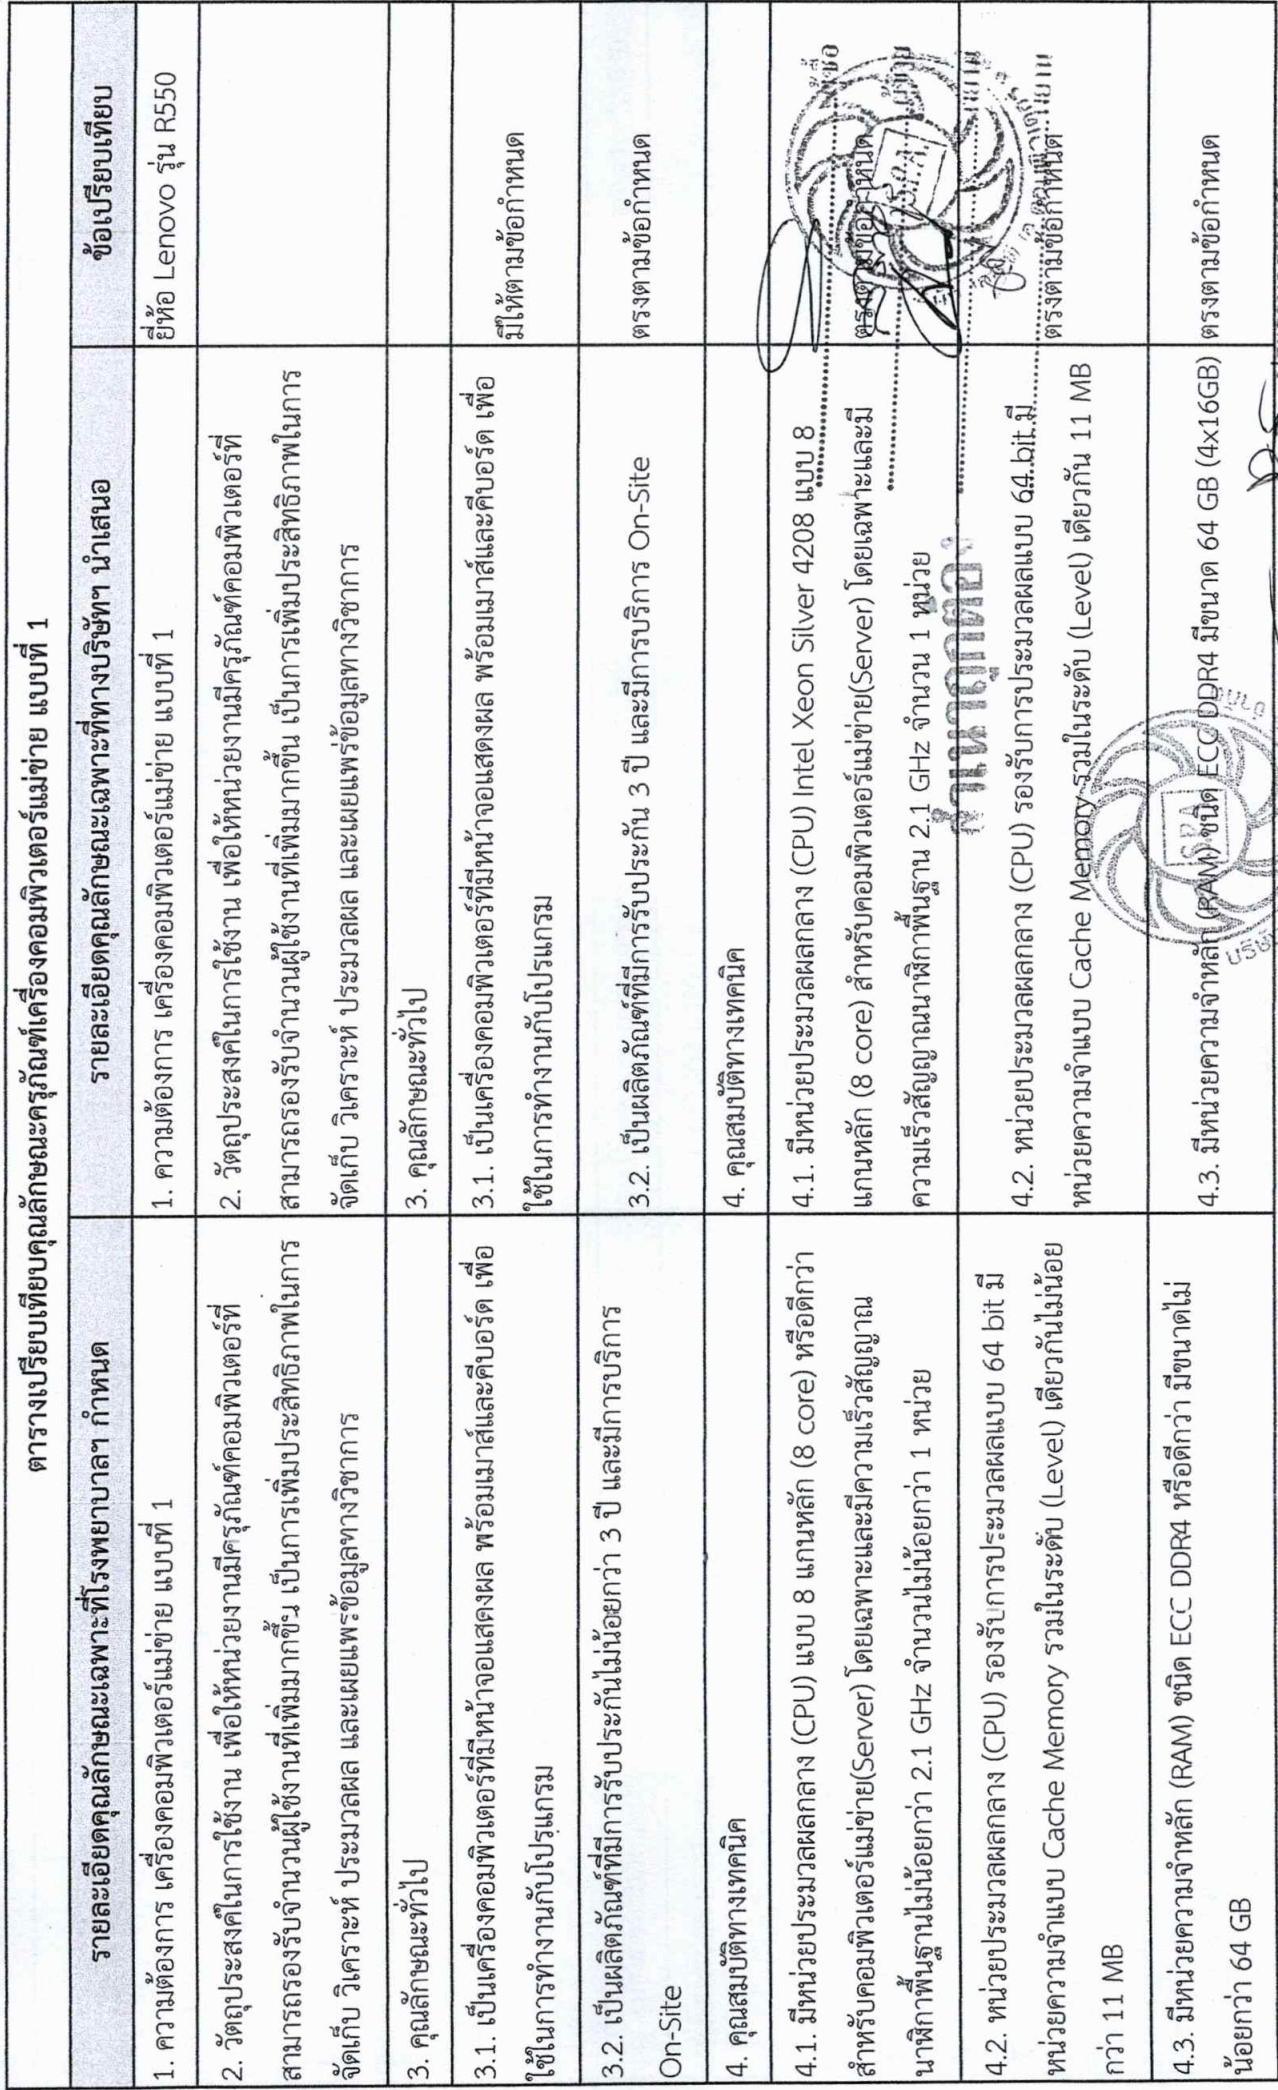 ตารางเปรียบเทียบคุณลักษณะครุภัณฑ์เครื่องคอมพิวเตอร์แม่ข่าย แบบที่ 1
รายละเอียดคุณลักษณะเฉพาะที่โรงพยาบาลฯ กำหนด
รายละเอียดคุณลักษณะเฉพาะที่ทางบริษัทฯ นำเสนอ
ข้อเปรียบเทียบ
1. ความต้องการ เครื่องคอมพิวเตอร์แม่ข่าย แบบที่ 1
1. ความต้องการ เครื่องคอมพิวเตอร์แม่ข่าย แบบที่ 1
ยี่ห้อ Lenovo รุ่น R550
2. วัตถุประสงค์ในการใช้งาน เพื่อให้หน่วยงานมีครุภัณฑ์คอมพิวเตอร์ที่
สามารถรองรับจำนวนผู้ใช้งานที่เพิ่มมากขึ้น เป็นการเพิ่มประสิทธิภาพในการ
จัดเก็บ วิเคราะห์ ประมวลผล และเผยแพร่ข้อมูลทางวิชาการ
2. วัตถุประสงค์ในการใช้งาน เพื่อให้หน่วยงานมีครุภัณฑ์คอมพิวเตอร์ที่
สามารถรองรับจำนวนผู้ใช้งานที่เพิ่มมากขึ้น เป็นการเพิ่มประสิทธิภาพในการ
จัดเก็บ วิเคราะห์ ประมวลผล และเผยแพร่ข้อมูลทางวิชาการ
3. คุณลักษณะทั่วไป
3. คุณลักษณะทั่วไป
3.1. เป็นเครื่องคอมพิวเตอร์ที่มีหน้าจอแสดงผล พร้อมเมาส์และคีบอร์ด เพื่อ
ใช้ในการทำงานกับโปรแกรม
3.1. เป็นเครื่องคอมพิวเตอร์ที่มีหน้าจอแสดงผล พร้อมเมาส์และคีบอร์ด เพื่อ
ใช้ในการทำงานกับโปรแกรม
มีให้ตามข้อกำหนด
3.2. เป็นผลิตภัณฑ์ที่มีการรับประกันไม่น้อยกว่า 3 ปี และมีการบริการ
On-Site
3.2. เป็นผลิตภัณฑ์ที่มีการรับประกัน 3 ปี และมีการบริการ On-Site
ตรงตามข้อกำหนด
4. คุณสมบัติทางเทคนิค
4. คุณสมบัติทางเทคนิค
4.1. มีหน่วยประมวลผลกลาง (CPU) แบบ 8 แกนหลัก (8 core) หรือดีกว่า
สำหรับคอมพิวเตอร์แม่ข่าย(Server) โดยเฉพาะและมีความเร็วสัญญาณ
นาฬิกาพื้นฐานไม่น้อยกว่า 2.1 GHz จำนวนไม่น้อยกว่า 1 หน่วย
4.1. มีหน่วยประมวลผลกลาง (CPU) Intel Xeon Silver 4208 แบบ 8
แกนหลัก (8 core) สำหรับคอมพิวเตอร์แม่ข่าย(Server) โดยเฉพาะและมี
ความเร็วสัญญาณนาฬิกาพื้นฐาน 2.1 GHz จำนวน 1 หน่วย
ตรงตามข้อกำหนด
สำเนาถูกต้อง
4.2. หน่วยประมวลผลกลาง (CPU) รองรับการประมวลผลแบบ 64 bit มี
หน่วยความจำแบบ Cache Memory รวมในระดับ (Level) เดียวกันไม่น้อย
กว่า 11 MB
4.2. หน่วยประมวลผลกลาง (CPU) รองรับการประมวลผลแบบ 64 bit มี
หน่วยความจำแบบ Cache Memory รวมในระดับ (Level) เดียวกัน 11 MB
ตรงตามข้อกำหนด
4.3. มีหน่วยความจำหลัก (RAM) ชนิด ECC DDR4 หรือดีกว่า มีขนาดไม่
น้อยกว่า 64 GB
4.3. มีหน่วยความจำหลัก (RAM) ชนิด ECC DDR4 มีขนาด 64 GB (4x16GB)
ตรงตามข้อกำหนด
SPA
SPA